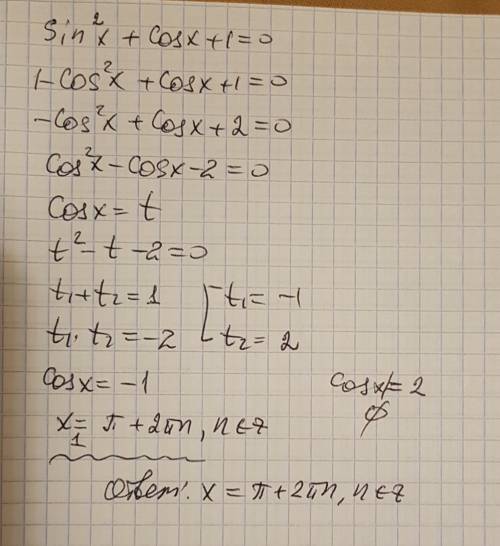 sin²x + cosx + 1 = 0
1 - cos²x + cosx + 1 = 0
-cos²x + cosx + 2 = 0
cos²x - cosx - 2 = 0
cosx = t
t² - t - 2 = 0
t₁ + t₂ = 1 [ t₁ = -1
t₁ · t₂ = -2 t₂ = 2
cosx = -1 cosx ≠ 2
x₁ = π + 2πn, n ∈ z ∅
Ответ: x = π + 2πn, n ∈ z